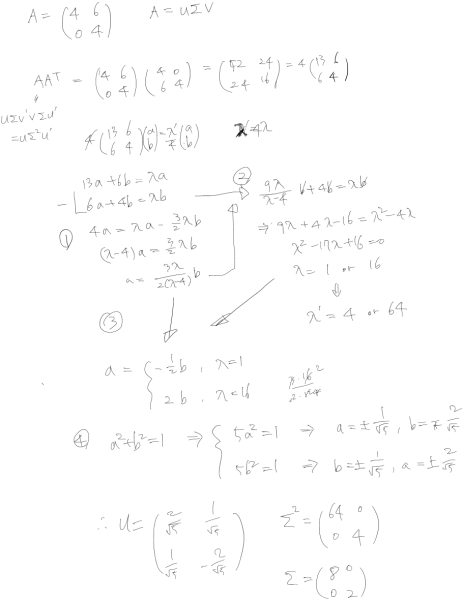 A = (4 6 / 0 4)   A = UΣV
AAᵀ = (4 6 / 0 4)(4 0 / 6 4) = (52 24 / 24 16) = 4(13 6 / 6 4)
UΣV'VΣU'
= UΣ²U'
4(13 6 / 6 4)(a / b) = λ'/4 (a / b)   λ' = 4λ
13a + 6b = λa
- 6a + 4b = λb
① 4a = λa - 3/2 λb
(λ-4)a = 3/2 λb
a = 3λ/2(λ-4) b
② 9λ/λ-4 b + 4b = λb
⇒ 9λ + 4λ - 16 = λ² - 4λ
λ² - 17λ + 16 = 0
λ = 1 or 16
⇓
λ' = 4 or 64
③
a = { -1/2 b , λ=1
2b , λ=16
④ a² + b² = 1 ⇒ { 5a² = 1 ⇒ a = ± 1/√5 , b = ∓ 2/√5
5b² = 1 ⇒ b = ± 1/√5 , a = ± 2/√5
∴ U = (2/√5 1/√5 / 1/√5 -2/√5)   Σ² = (64 0 / 0 4)
Σ = (8 0 / 0 2)